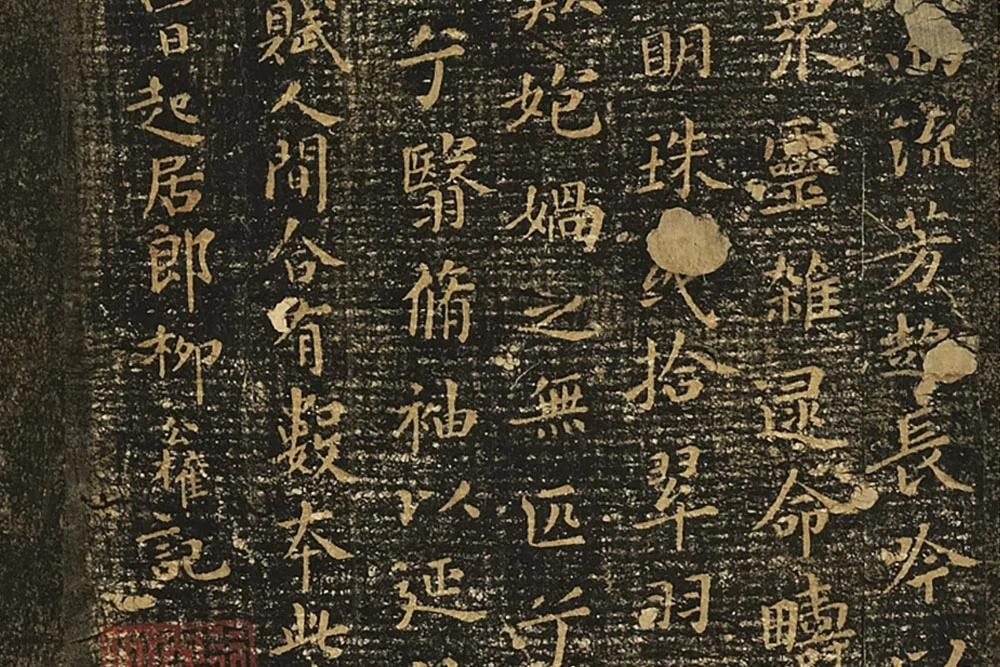 流芳超長吟以
衆靈雜遝命疇
明珠或拾翠羽
歎㚿媧之無匹兮
兮翳脩袖以延
賦人間合有數本此
日起居郎柳公權記